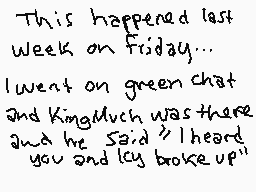 This happened last
week on Friday...
I went on green chat
and KingMuch was there
and he said "I heard
you and Icy broke up"